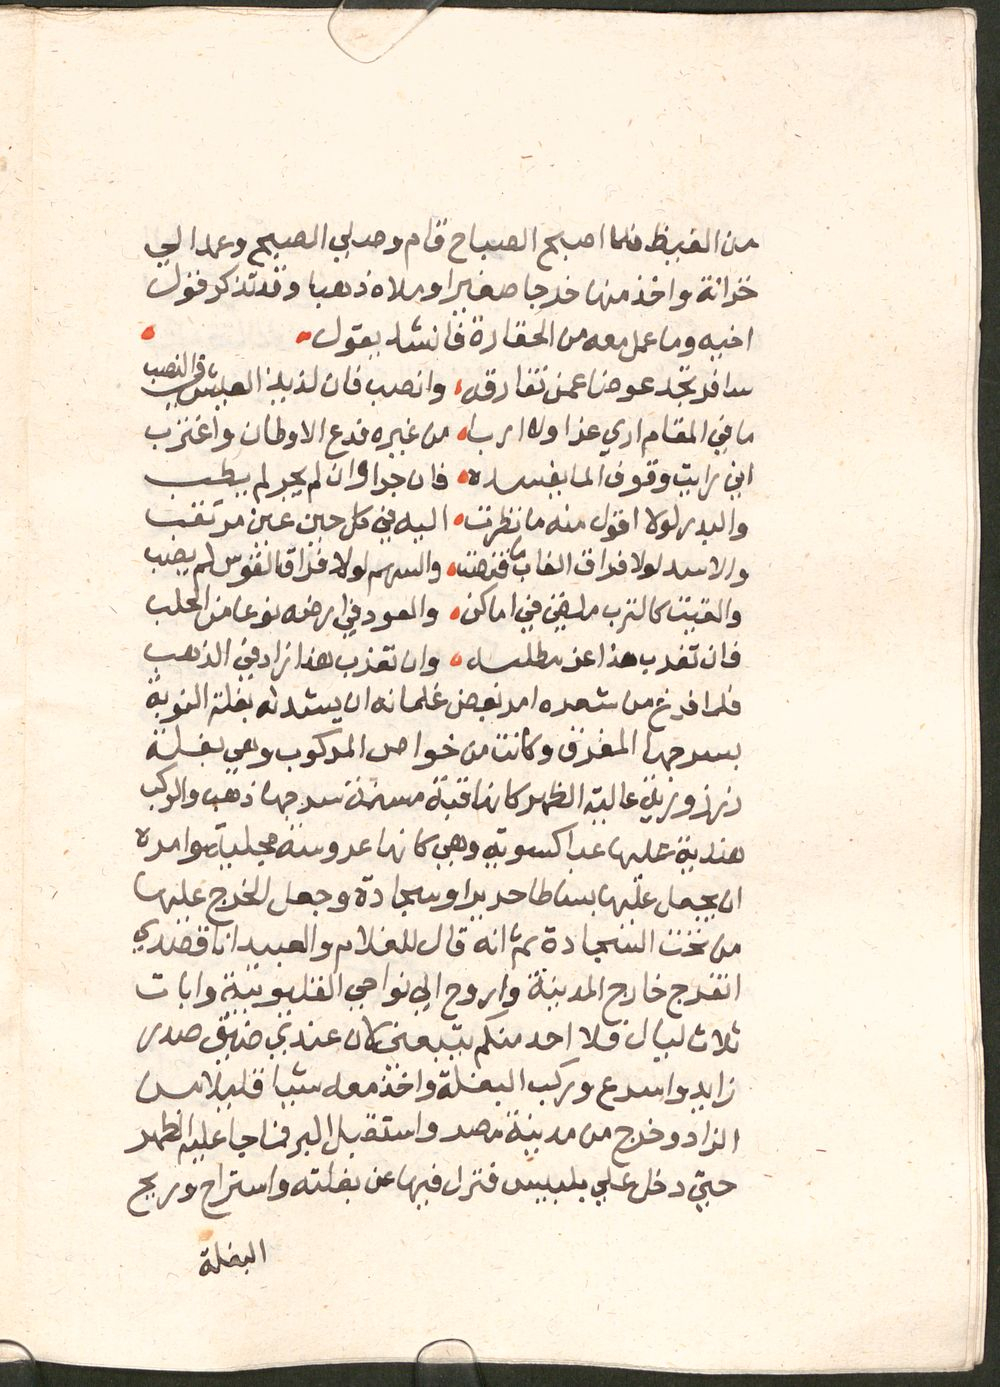 من الغيظ فلما اصبح الصباح قام وصلي الصبح وعمد الي
خزانة واخذ منها خرجا صغيرا وملاه ذهبا وقد تذكر قول
اخيه وما عمل معه من الحقارة فانشد يقول
سافر تجد عوضا عمن تفارقه وانصب فان لذيذ العيش في النصب
ما في المقام اري عزا ولا اربا من غيره فدع الاوطان واغترب
اني رايت وقوف الما يفسده فان جرا وان لم يجر لم يطب
والبدر لولا افول منه ما نظرت اليه في كل حين عين مرتقب
والاسد لولا فراق الغاب ما قنصت والسهم لولا فراق القوس لم يصب
والتبت كالترب ملقي في اماكن والعود في ارضه نوعا من الحطب
فان تغرب هذا عز مطلبه وان تغرب هذا زاد في الذهب
فلما فرغ من شعره امر بعض غلمانه ان يشد له بغلة النوبة
بسرجها المغرق وكانت من خواص المركوب وهي بغلة
زرزورية عالية الظهر كانها قبة مسنمة سرجها ذهب والركب
هندية عليها عبا كسروية وهي كانها عروسة مجلية وامره
ان يجعل عليها بساطا حريرا وسجادة وجعل الخرج عليها
من تحت السجادة ثم انه قال للغلام والعبيد انا قصدي
اتفرج خارج المدينة واروح الي نواحي القليوبية وابات
ثلاث ليال فلا احد منكم يتبعني كان عندي ضيق صدر
زايد واسرع وركب البغلة واخذ معه شيا قليلا من
الزاد وخرج من مدينة مصر واستقبل البر فما جا عليه الظهر
حتي دخل علي بلبيس فنزل فيها عن بغلته واستراح وريح
البغلة